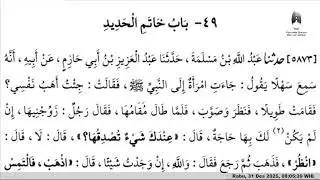 ٤٩- بَابُ خَاتَمِ الْحَدِيدِ
[٥٨٧٣] حَدَّثَنَا عَبْدُ اللَّهِ بْنُ مَسْلَمَةَ، حَدَّثَنَا عَبْدُ الْعَزِيزِ بْنُ أَبِي حَازِمٍ، عَنْ أَبِيهِ، أَنَّهُ
سَمِعَ سَهْلًا يَقُولُ: جَاءَتِ امْرَأَةٌ إِلَى النَّبِيِّ ﷺ، فَقَالَتْ: جِئْتُ أَهَبُ نَفْسِي؟
فَقَامَتْ طَوِيلًا، فَنَظَرَ وَصَوَّبَ، فَلَمَّا طَالَ مُقَامُهَا، فَقَالَ رَجُلٌ: زَوِّجْنِيهَا، إِنْ
لَمْ يَكُنْ (٢) لَكَ بِهَا حَاجَةٌ، قَالَ: «عِنْدَكَ شَيْءٌ تُصْدِقُهَا؟»، قَالَ: لَا، قَالَ:
«انْظُرْ»، فَذَهَبَ ثُمَّ رَجَعَ فَقَالَ: وَاللَّهِ، إِنْ وَجَدْتُ شَيْئًا، قَالَ: «اذْهَبْ، فَالْتَمِسْ
Rabu, 31 Des 2025, 08:05:39 WIB